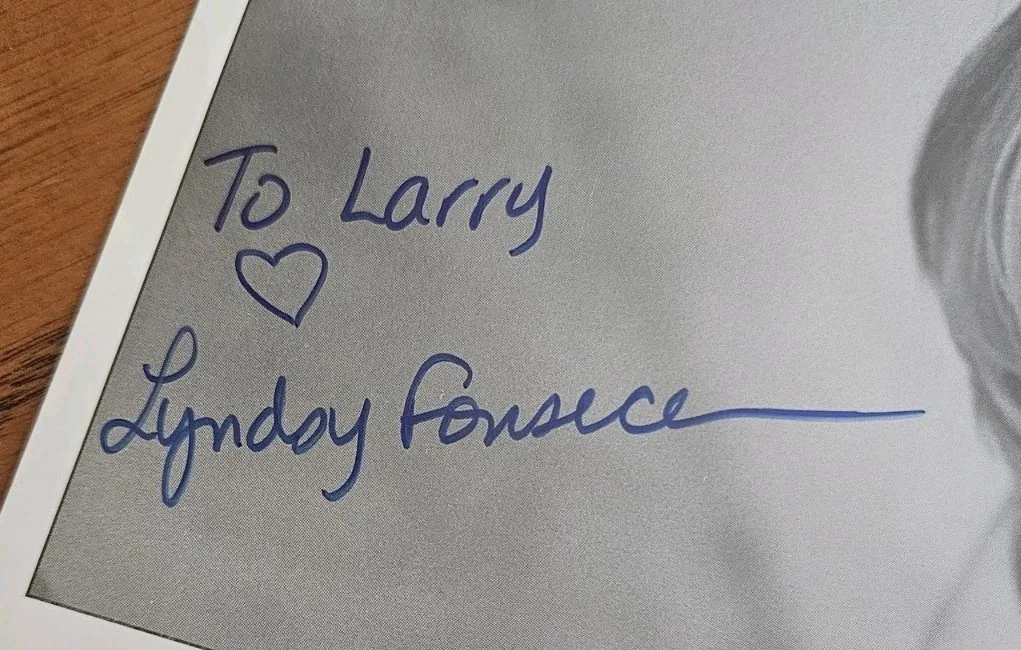 To Larry
♡
Lyndsy Fonseca